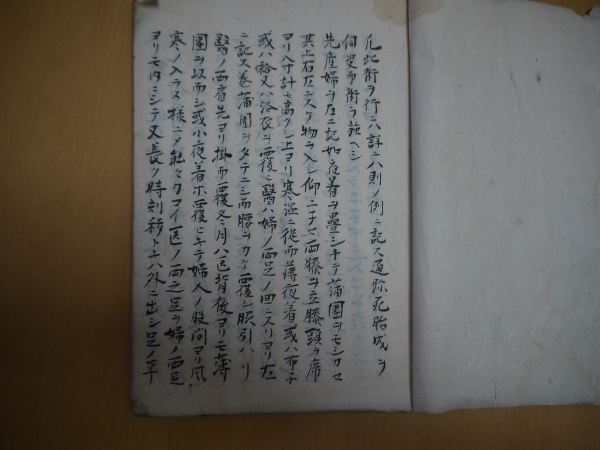 凡此術ヲ行ニハ詳ニハ則ノ例ニ記ス通弥死胎成ヲ
伺斐而術ヲ施ヘシ
先産婦ヲ左ニ記如夜着ヲ畳シキテ蒲團ヲモシカセ
其上右左ニスケ物ヲ入レ仰ニナセ両膝ヲ立膝頭ヲ席
ヨリ八寸計モ高クシ上ヨリ寒温ニ従而薄夜着或ハ布子
或ハ袷又ハ浴衣ヲ覆ヒ醫ハ婦ノ両足ノ間ニスリヨリ左
ニ記ス巻蒲團ヲタテニシ而腰ヲカケ覆シ股引ハリ
醫ノ両肩先ヨリ掛而覆冬月ハ医背後ヨリモ薄
團ヲ以而シ或小夜着ホ覆ヒキテ婦人ノ股間ヨリ風
寒ノ入ラヌ様ニ〆能々カコイ医ノ両之足ヲ婦ノ両足
ヨリモ内ニシテ又長ク時刻移トキハ外ニ出シ足ノ平